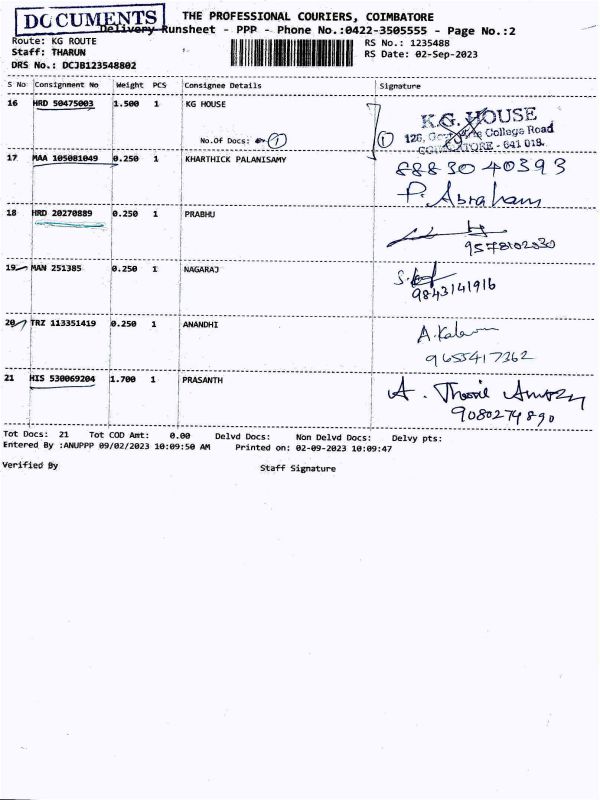 DOCUMENTS
THE PROFESSIONAL COURIERS, COIMBATORE
Delivery Runsheet - PPP - Phone No.:0422-3505555 - Page No.:2
Route: KG ROUTE
RS No.: 1235488
Staff: THARUN
RS Date: 02-Sep-2023
DRS No.: DCJB123548802
S No Consignment No Weight PCS Consignee Details Signature
16 HRD 50475003 1.500 1 KG HOUSE
K.G. HOUSE
No.Of Docs: 1
1 126, College Road
COIMBATORE - 641 018.
17 MAA 105081049 0.250 1 KHARTHICK PALANISAMY
8883040393
P. Abraham
18 HRD 20270889 0.250 1 PRABHU
9578102030
19 MAN 251385 0.250 1 NAGARAJ
9843141916
20 TRZ 113351419 0.250 1 ANANDHI
A.
9655417362
21 HIS 530069204 1.700 1 PRASANTH
A.
9080274890
Tot Docs: 21 Tot COD Amt: 0.00 Delvd Docs: Non Delvd Docs: Delvy pts:
Entered By :ANUPPP 09/02/2023 10:09:50 AM Printed on: 02-09-2023 10:09:47
Verified By Staff Signature